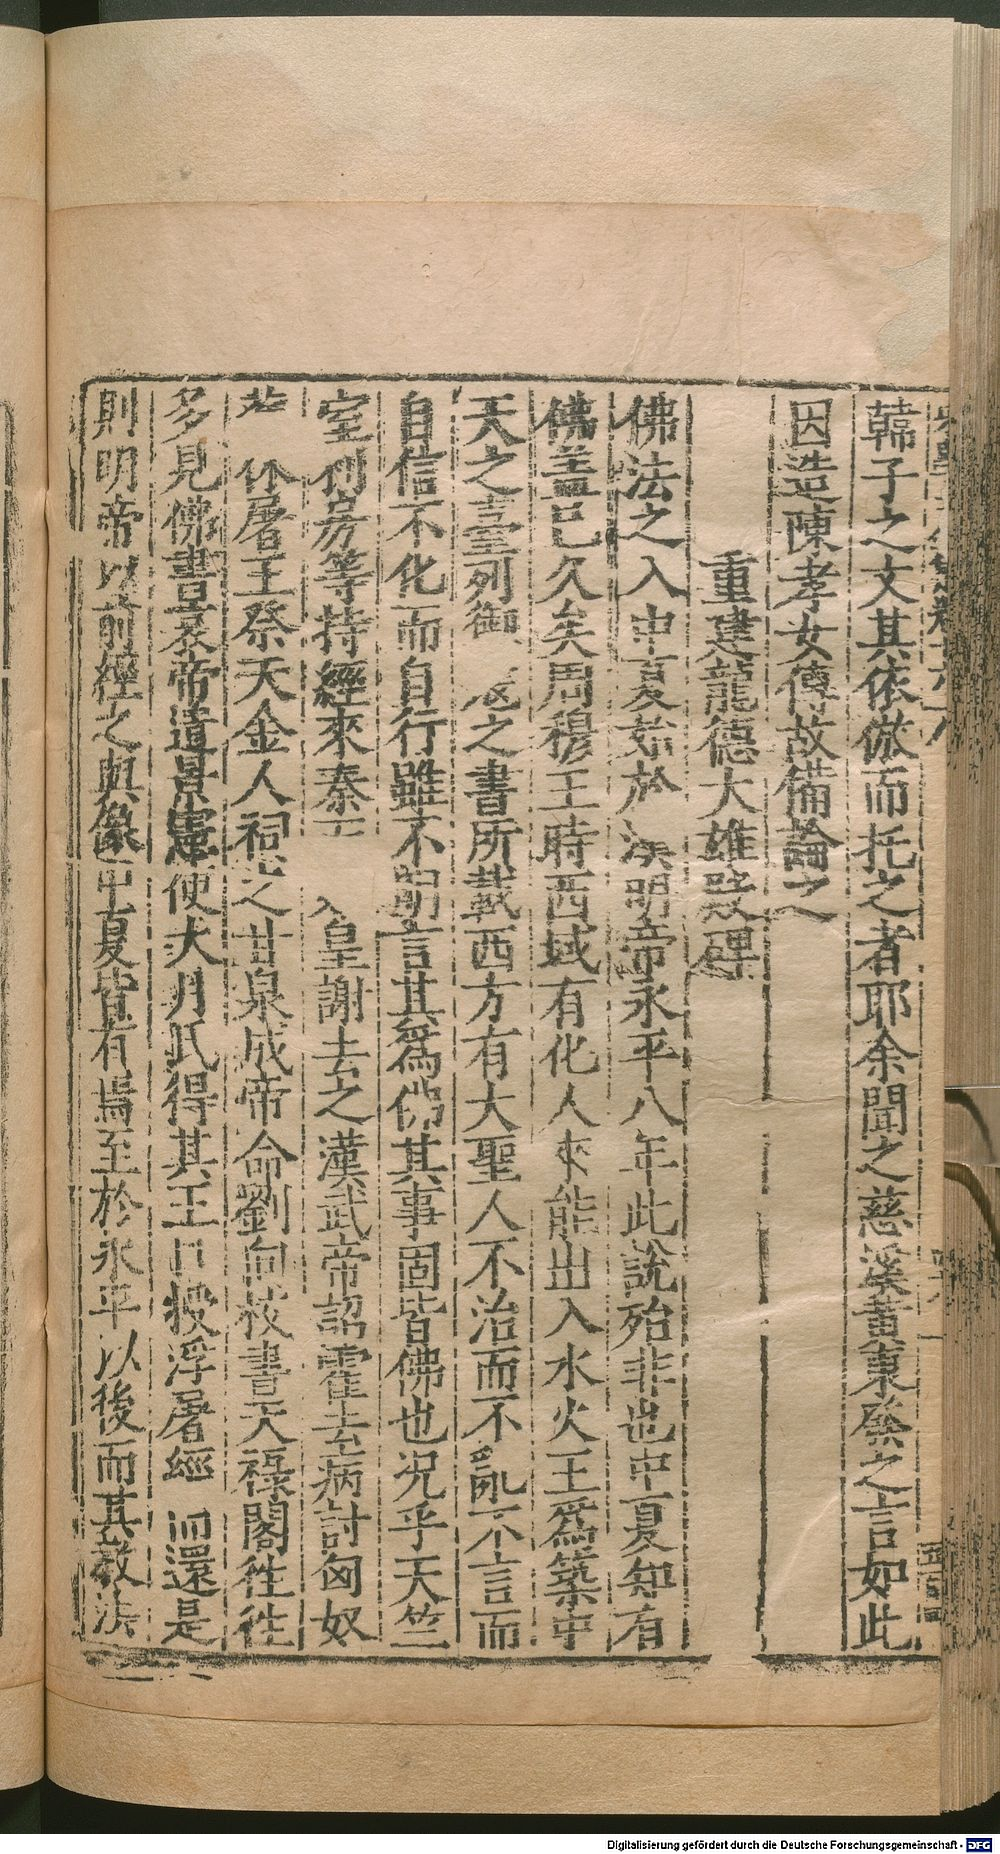 韓子之文其依倣而托之者耶余聞之慈溪黃東發之言如此
因造陳孝女傳故備論之
重建龍德大雄殿碑
佛法之入中夏始於漢明帝永平八年此說殆非也中夏知有
佛盖已久矣周穆王時西域有化人來能出入水火王爲築中
天之臺列御寇之書所載西方有大聖人不治而不亂不言而
自信不化而自行雖不明言其爲佛其事固皆佛也况乎天竺
室利房等持經來秦 皇謝去之漢武帝詔霍去病討匈奴
休屠王祭天金人祠之甘泉成帝命劉向校書天祿閣徃徃
多見佛書哀帝遣景憲使大月氏得其王口授浮屠經 而還是
則明帝以前經之與像中夏皆有焉至於永平以後而其教法
Digitalisierung gefördert durch die Deutsche Forschungsgemeinschaft - DFG